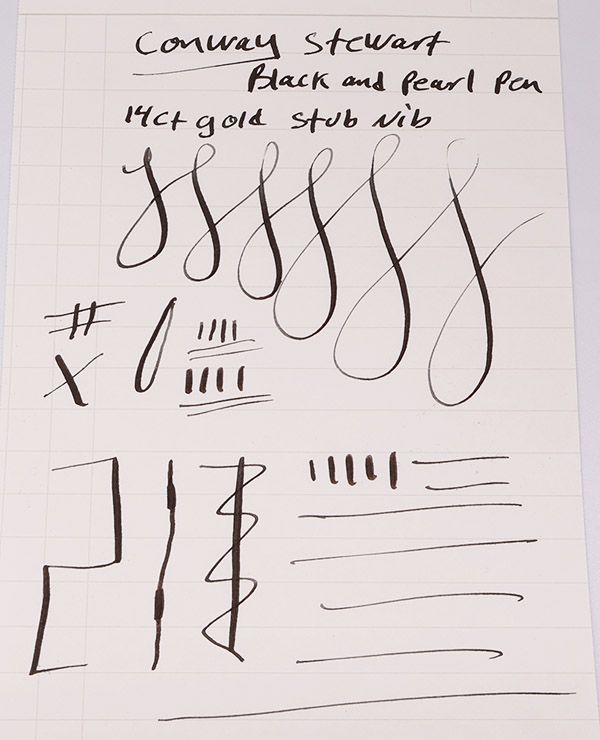 Conway Stewart
Black and Pearl Pen
14ct gold stub nib